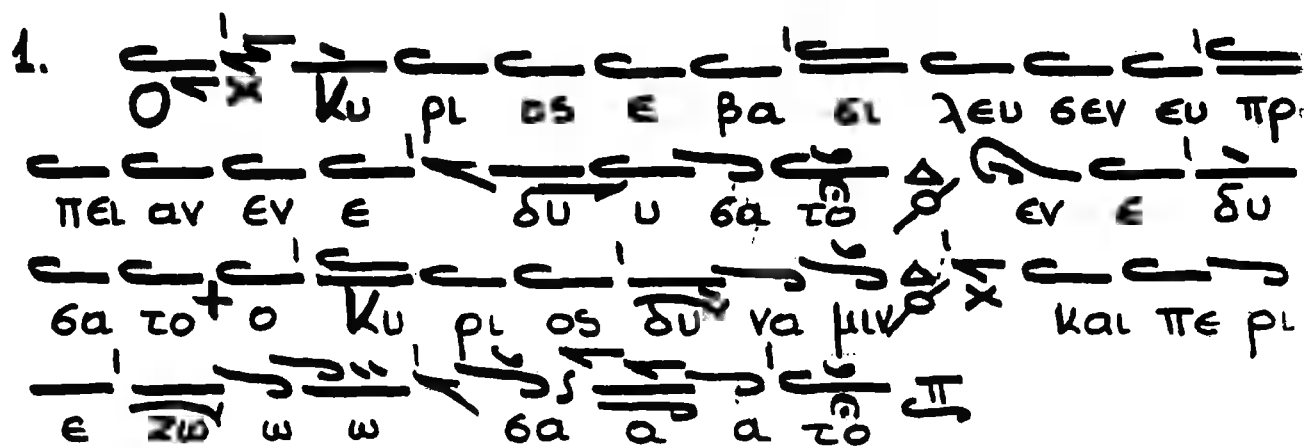 1. Ο Κυ ρι ος ε βα σι λευ σεν ευ πρ
πει αν εν ε δυ υ σα το εν ε δυ
σα το ο Κυ ρι ος δυ να μιν και πε ρι
ε ζω ω ω σα α α το